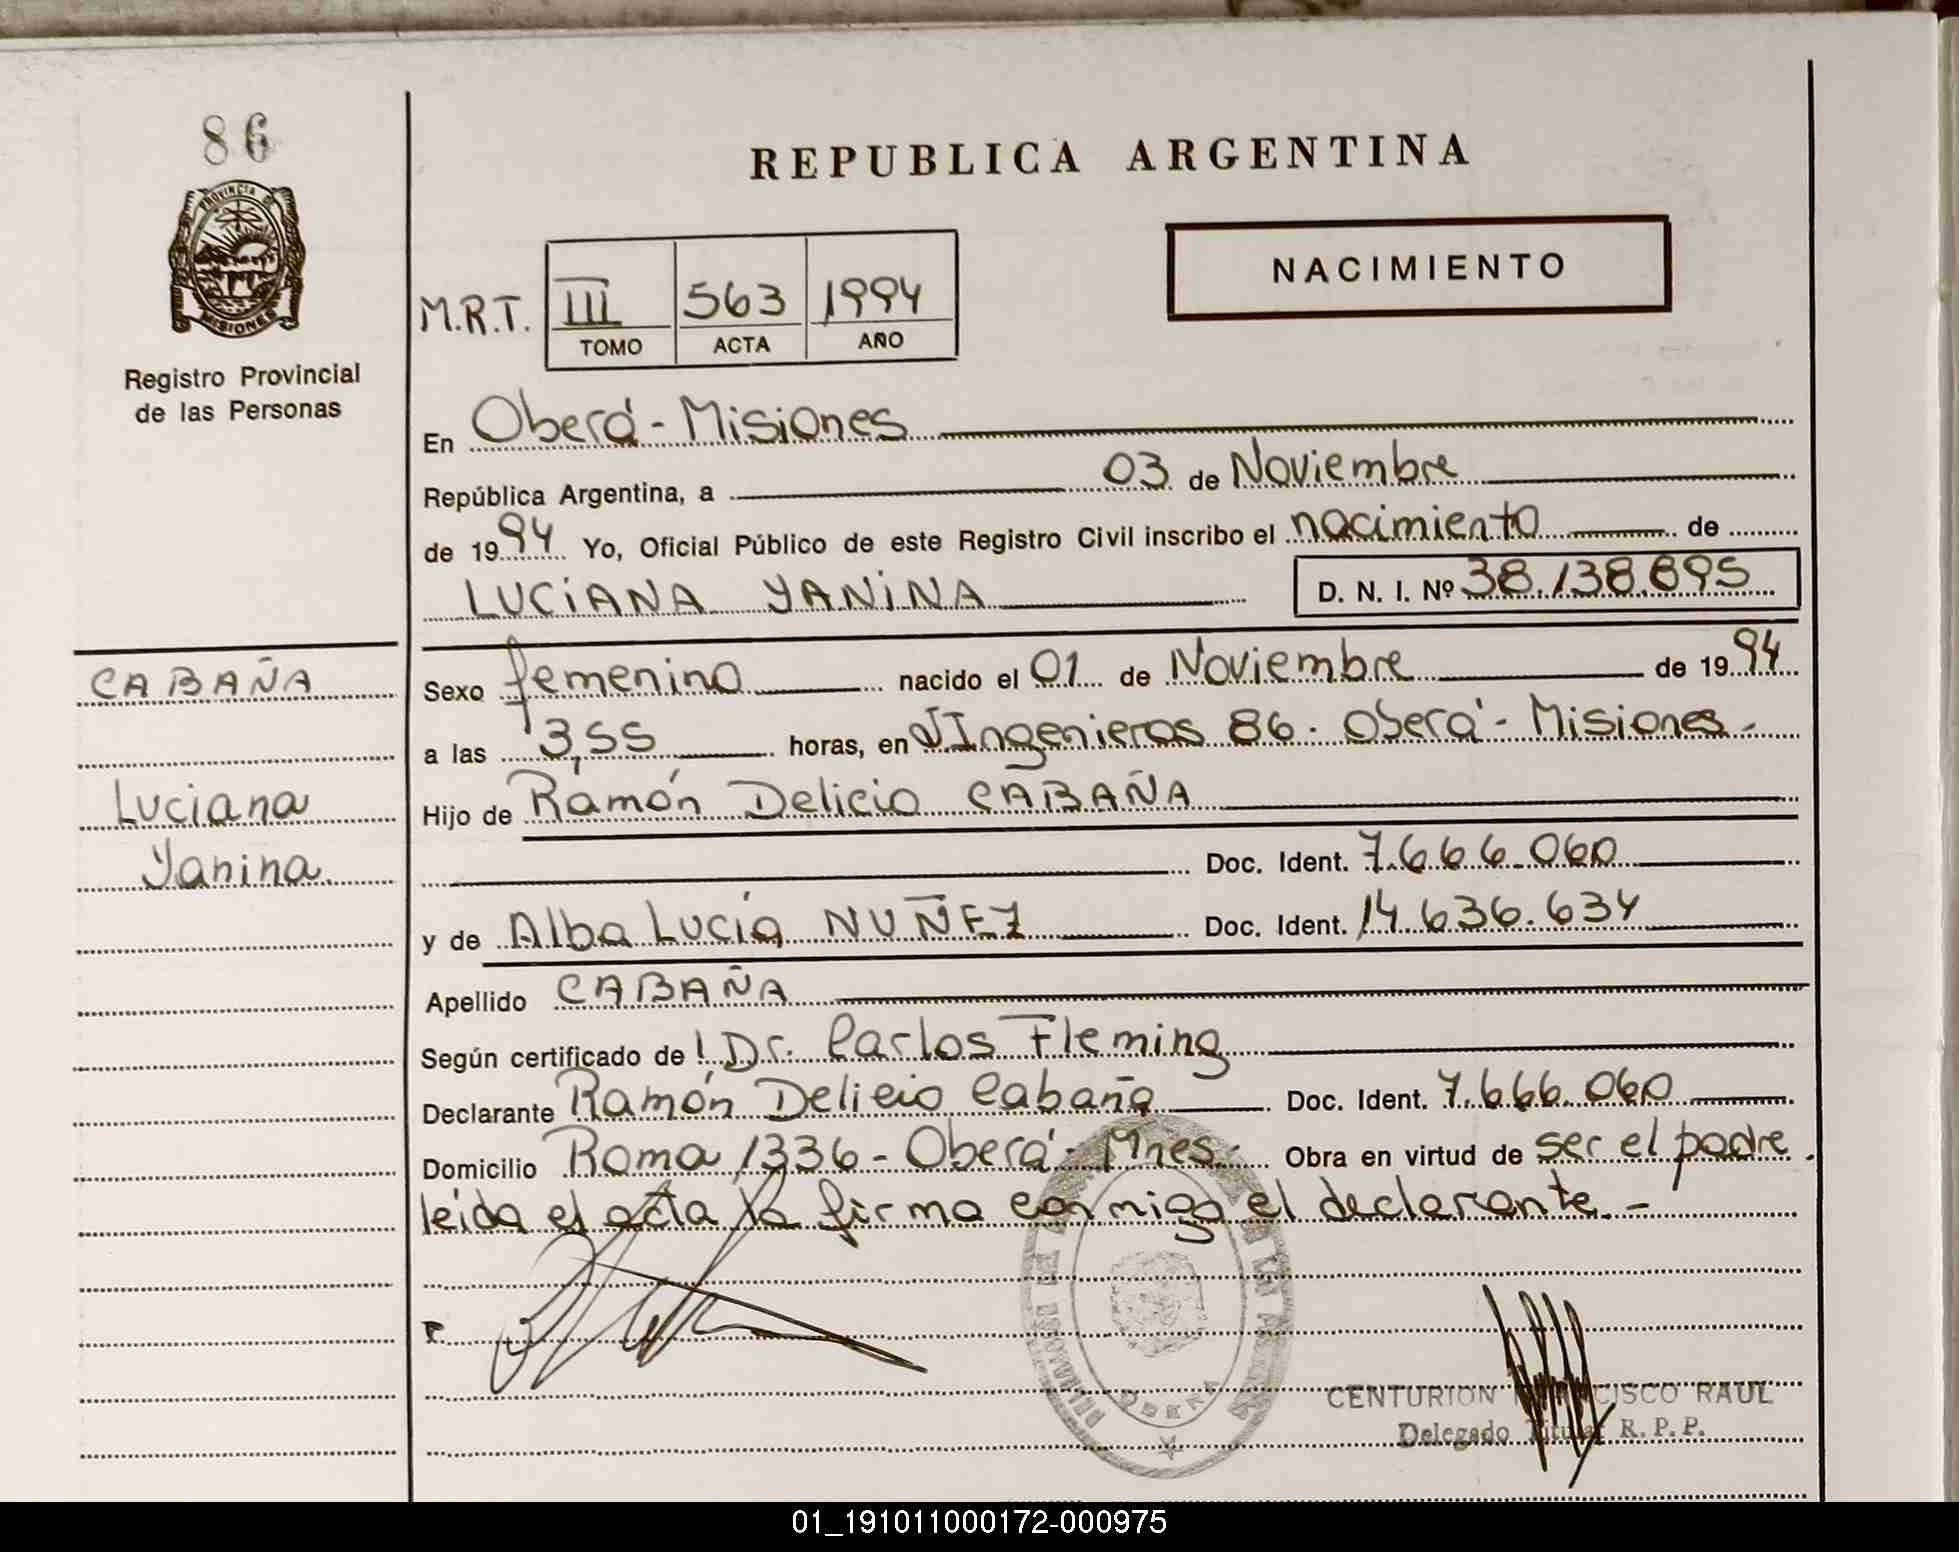 86
PROVINCIA DE
MISIONES
Registro Provincial
de las Personas
REPUBLICA ARGENTINA
NACIMIENTO
M.R.T. III 563 1994
TOMO ACTA AÑO
En Oberá - Misiones
República Argentina, a 03 de Noviembre
de 1994 Yo, Oficial Público de este Registro Civil inscribo el nacimiento de
LUCIANA YANINA D. N. I. Nº 38.138.895
CABAÑA
Sexo femenino nacido el 01 de Noviembre de 1994
a las 3,55 horas, en Ingenieros 86. Oberá - Misiones -
Luciana
Hijo de Ramón Delicio CABAÑA
Yanina.
Doc. Ident. 7.666.060
y de Alba Lucía NUÑEZ Doc. Ident. 14.636.634
Apellido CABAÑA
Según certificado de Dr. Carlos Fleming
Declarante Ramón Delicio Cabaña Doc. Ident. 7.666.060
Domicilio Roma 1336 - Oberá - Mnes. Obra en virtud de ser el padre.
leida el acta la firma conmigo el declarante. -
OBERA
CENTURION FRANCISCO RAUL
Delegado Titular R. P. P.
01_191011000172-000975